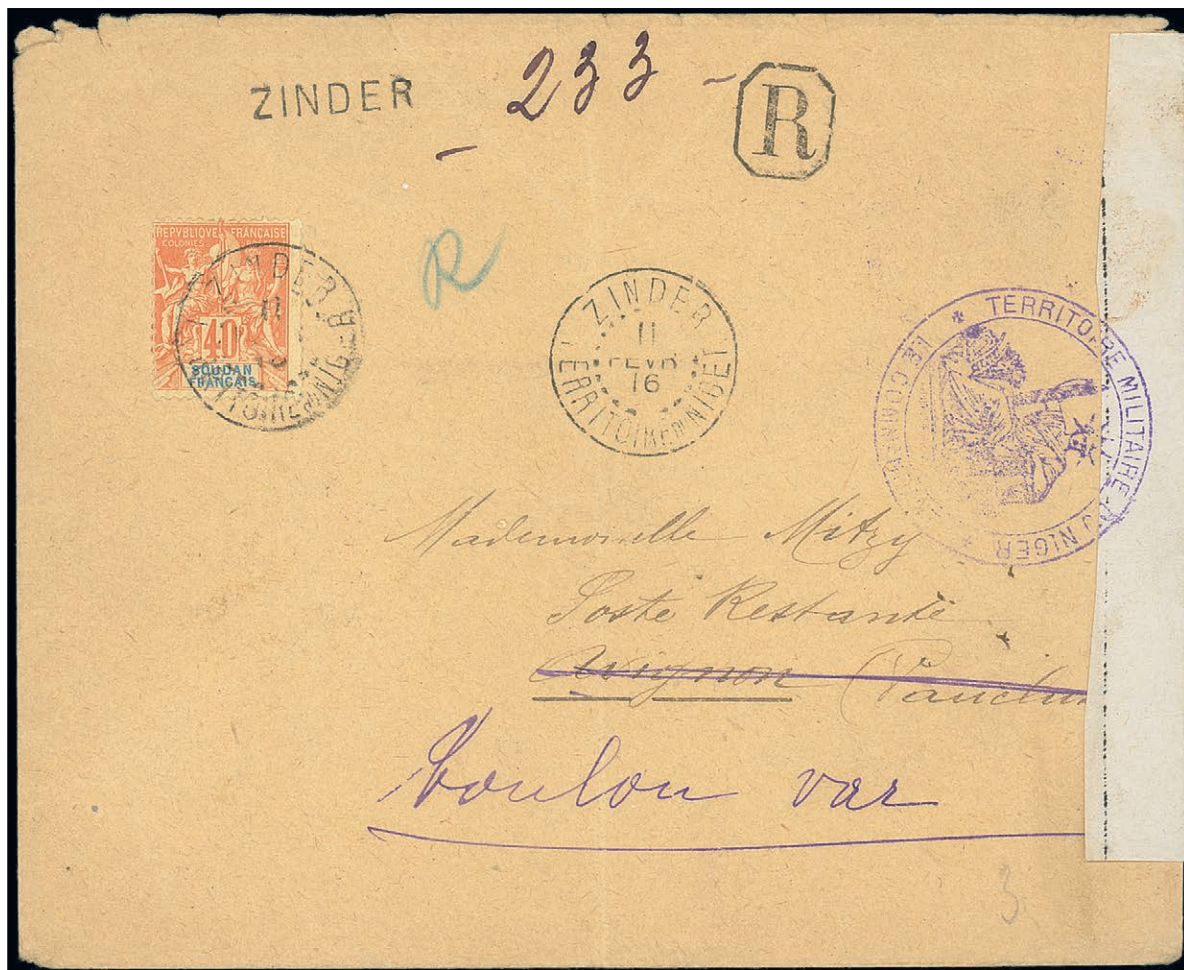 ZINDER
- 233 -
R
R
REPVBLIQVE FRANÇAISE
COLONIES
40
SOUDAN
FRANÇAIS
ZINDER
11
ZINDER
11
FEVR
16
TERRITOIRE M NIGER
TERRITOIRE MILITAIRE DU NIGER
LE COMM
Mademoiselle Mitzy
Poste Restante
Avignon (Vauclus
Toulon var
3